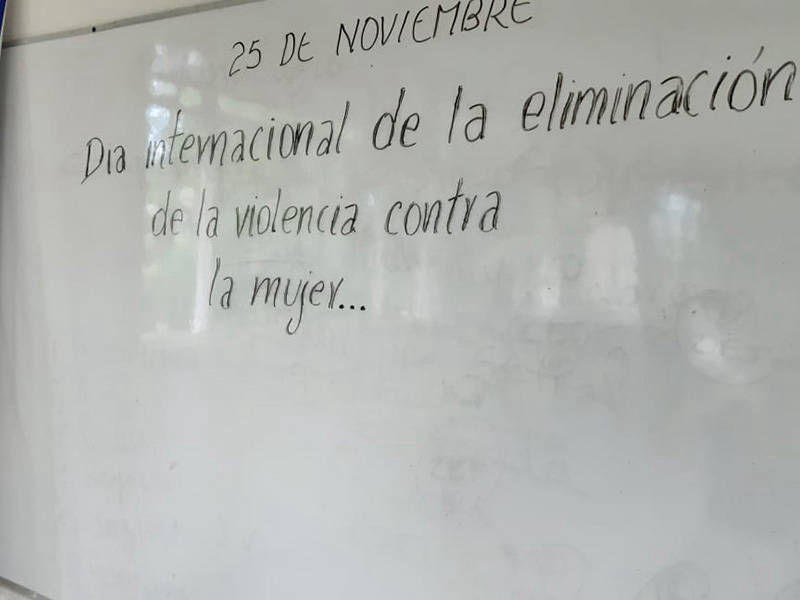 25 DE NOVIEMBRE
Dia internacional de la eliminación
de la violencia contra
la mujer...